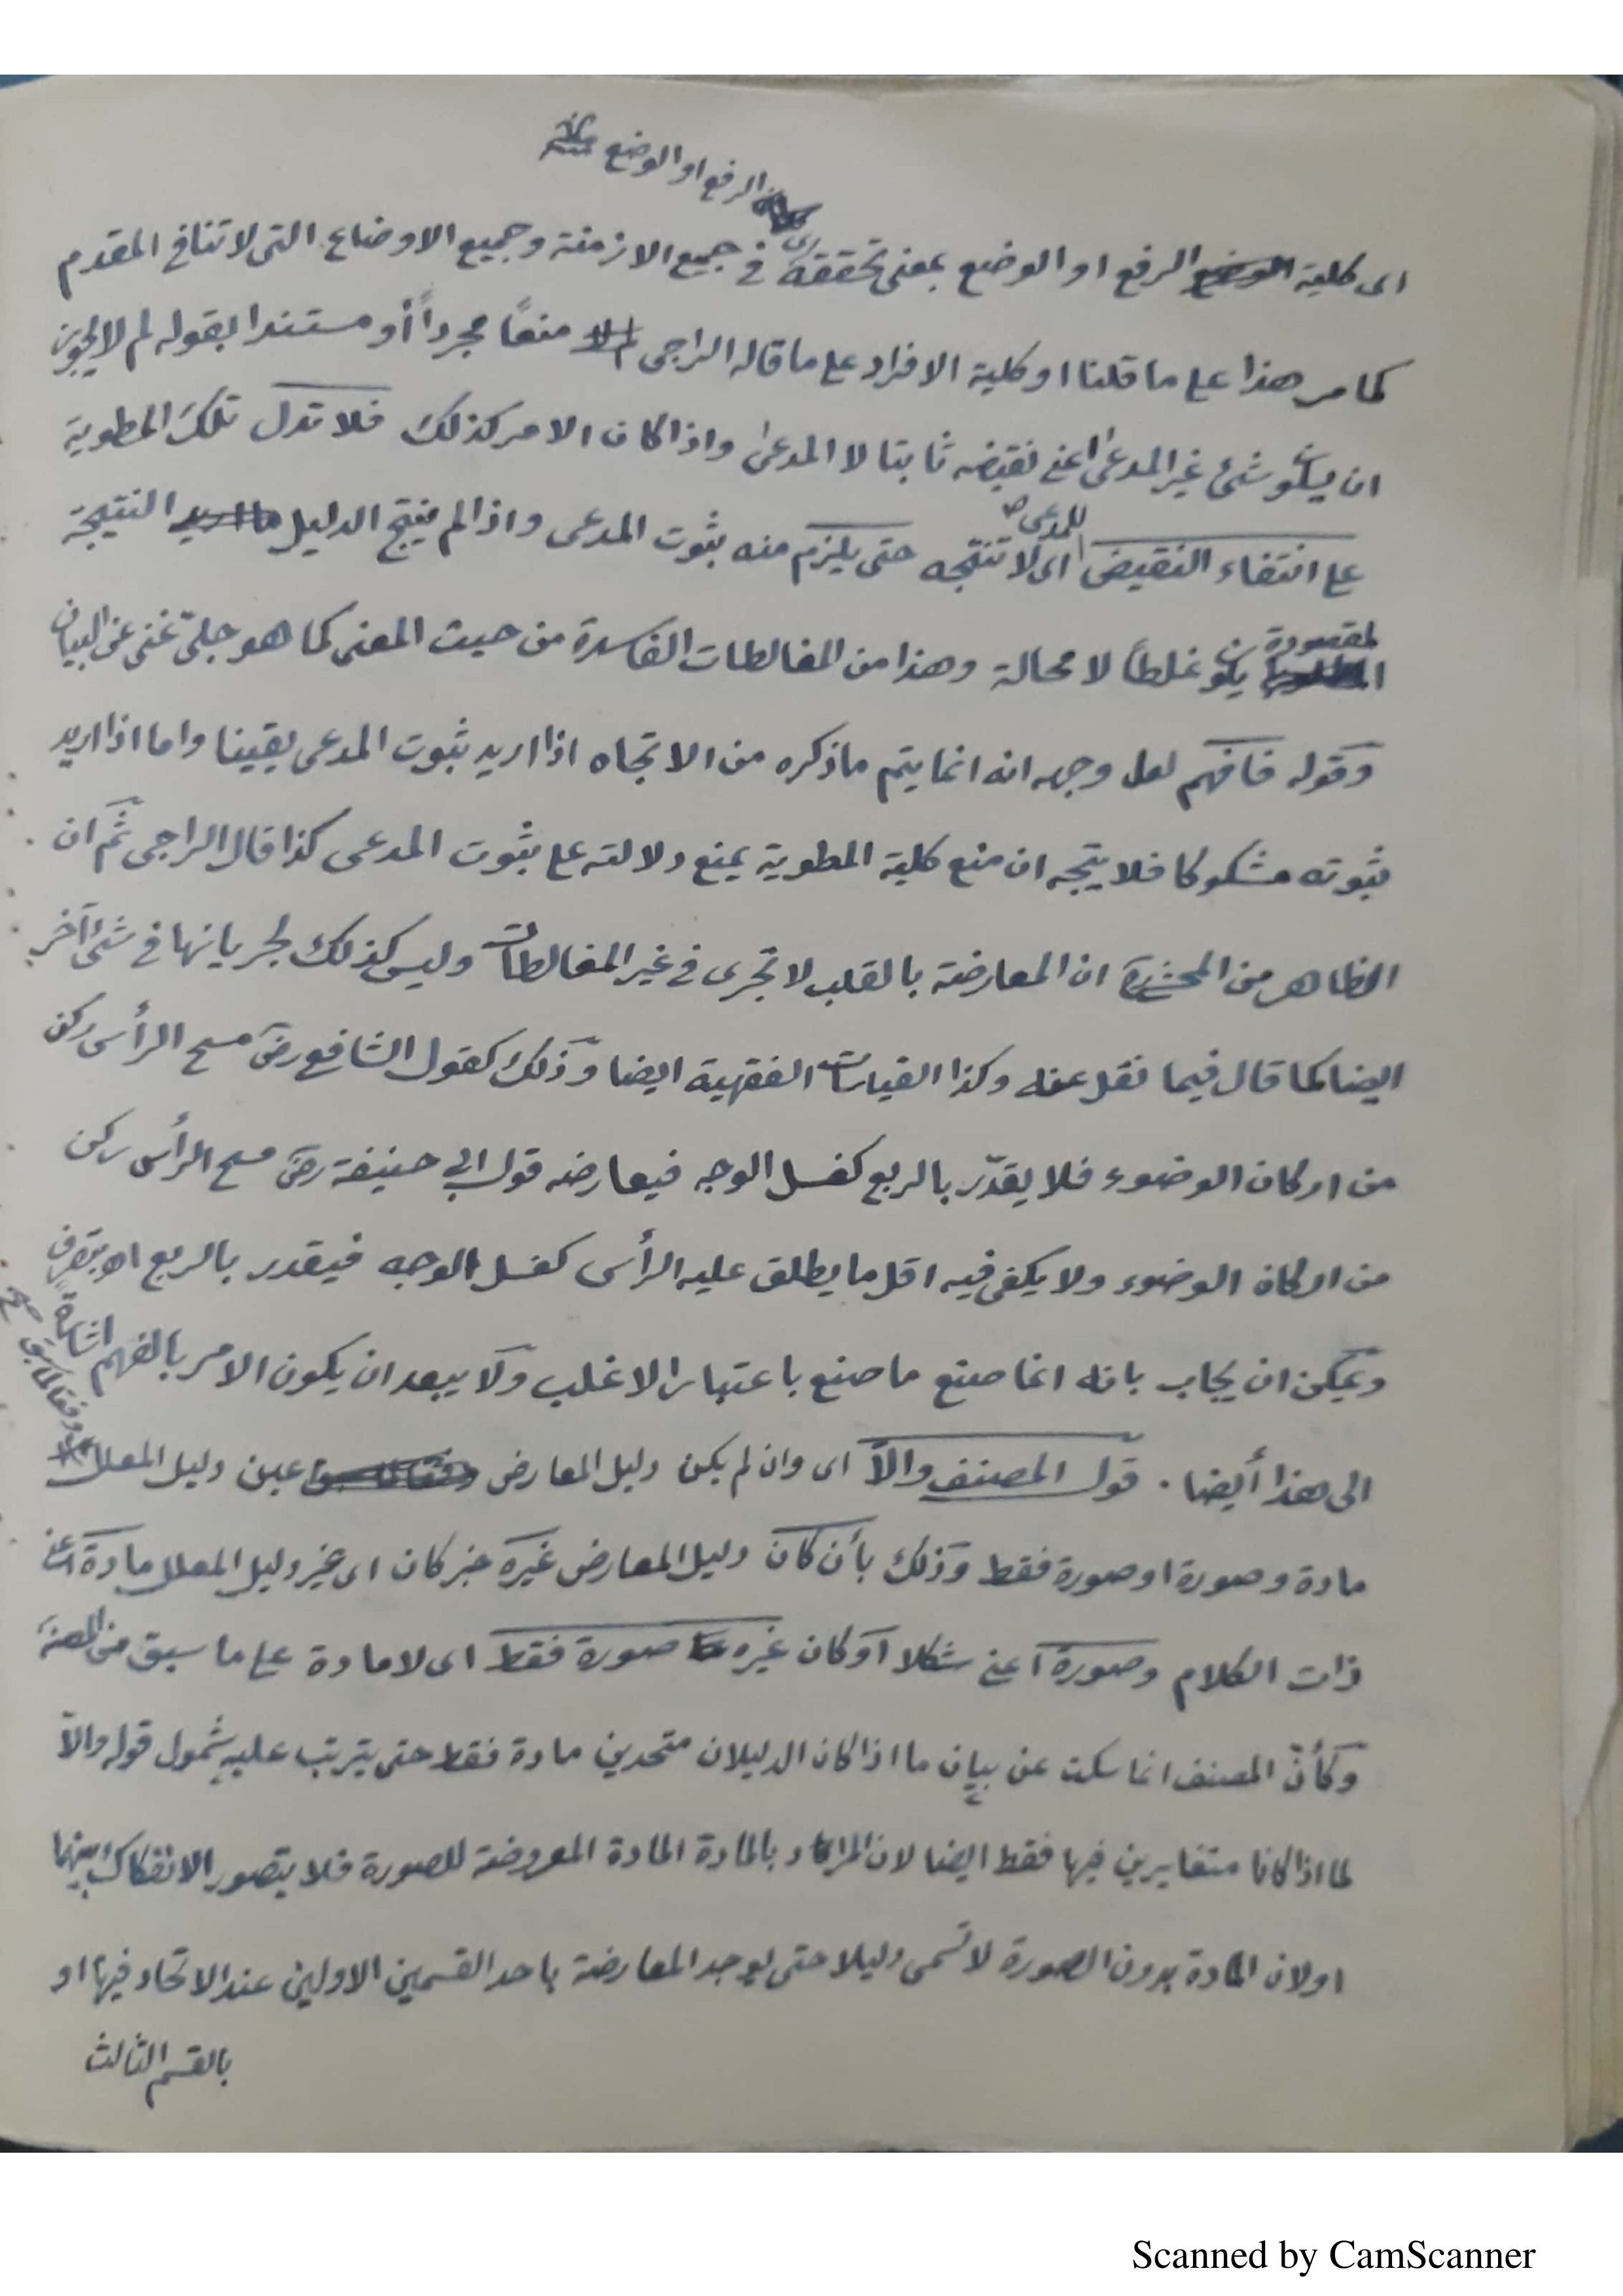 الرفع او الوضع
اى كلية الرفع او الوضع بمعنى تحققه فى جميع الازمنة وجميع الاوضاع التى لا تنافى المقدم
كما مر هذا على ما قلنا او كلية الافراد على ما قاله الراجى منعًا مجرداً أو مستندا بقوله لم لا يجوز
ان يكون شئ غير المدعى اعنى نقيضه ثابتا لا المدعى واذا كان الامر كذلك فلا تدل تلك المطوية
على انتفاء النقيض اى لا تنتجه حتى يلزم منه ثبوت المدعى واذا لم ينتج الدليل النتيجة
للمدعى
المقصودة يكون غلطاً لا محالة وهذا من المغالطات الفاسدة من حيث المعنى كما هو جلىّ غنى عن البيان
وقوله فافهم لعل وجهه انه انما يتم ما ذكره من الاتجاه اذا اريد ثبوت المدعى يقينا واما اذا اريد
ثبوته مشكوكا فلا يتجه ان منع كلية المطوية يمنع دلالته على ثبوت المدعى كذا قال الراجى ثم ان
الظاهر من المحشى ان المعارضة بالقلب لا تجرى فى غير المغالطات وليس كذلك لجريانها فى شئ آخر
ايضا كما قال فيما نقل عنه وكذا القياسات الفقهية ايضا وذلك كقول الشافعى رض مسح الرأس ركن
من اركان الوضوء فلا يقدّر بالربع كغسل الوجه فيعارضه قول ابى حنيفة رض مسح الرأس ركن
من اركان الوضوء ولا يكفى فيه اقل ما يطلق عليه الرأس كغسل الوجه فيقدر بالربع اه بتصرف
ويمكن ان يجاب بانه انما صنع ما صنع باعتبار الاغلب ولا يبعد ان يكون الامر بالفهم اشارة
الى هذا أيضا . قول المصنف والاّ اى وان لم يكن دليل المعارض عين دليل المعلل
وفقا لما سبق
مادة وصورة او صورة فقط وذلك بأن كان دليل المعارض غيره خبر كان اى غير دليل المعلل مادة اعنى
ذات الكلام وصورة اعنى شكلا او كان غيره صورة فقط اى لا مادة على ما سبق من المصنف
وكأنّ المصنف انما سكت عن بيان ما اذا كان الدليلان متحدين مادة فقط حتى يترتب عليه شمول قوله والاّ
لما اذا كانا متغايرين فيها فقط ايضا لان المراد بالمادة المادة المعروضة للصورة فلا يتصور الانفكاك بينهما
او لان المادة بدون الصورة لا تسمى دليلا حتى يوجد المعارضة باحد القسمين الاولين عند الاتحاد فيها او
بالقسم الثالث
Scanned by CamScanner